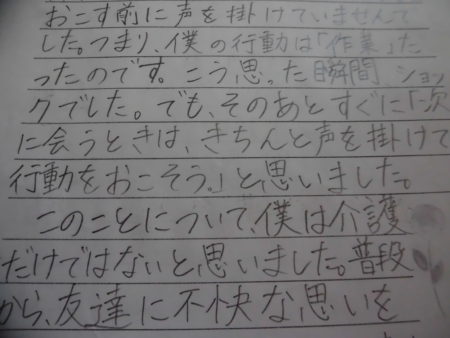 おこす前に声を掛けていませんで
した。つまり、僕の行動は「作業」だ
ったのです。こう思った瞬間、ショッ
クでした。でも、そのあとすぐに「次
に会うときは、きちんと声を掛けて
行動をおこそう。」と思いました。
このことについて、僕は介護
だけではないと思いました。普段
から、友達に不快な思いを